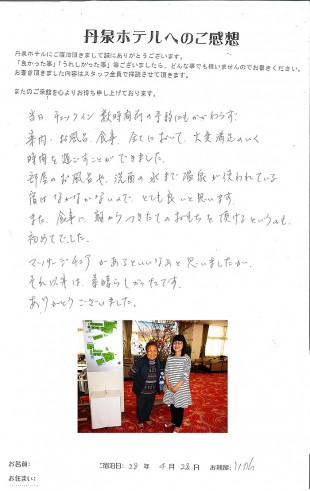 丹泉ホテルへのご感想
丹泉ホテルにご宿泊頂きまして誠にありがとうございます。
「良かった事」「うれしかった事」等ございましたら、どんな事でも構いませんのでお書きください。
お書き頂きました内容はスタッフ全員で拝読させて頂きます。
またのご来館を心よりお待ち申し上げております。
当日、チェックイン数時間前の予約にもかかわらず、
案内・お風呂、食事、全てにおいて、大変満足のいく
時間を過ごすことができました。
部屋のお風呂や、洗面の水まで温泉が使われている
宿はなかなかないので、とても良いと思います。
また、食事に朝からつきたてのおもちを頂けるというのも、
初めてでした。
マッサージチェアがあるといいなあと思いましたが、
それ以外は、素晴らしかったです。
ありがとうございました。
お名前:
ご宿泊日: 28 年 4 月 28 日
お部屋:
お住まい: